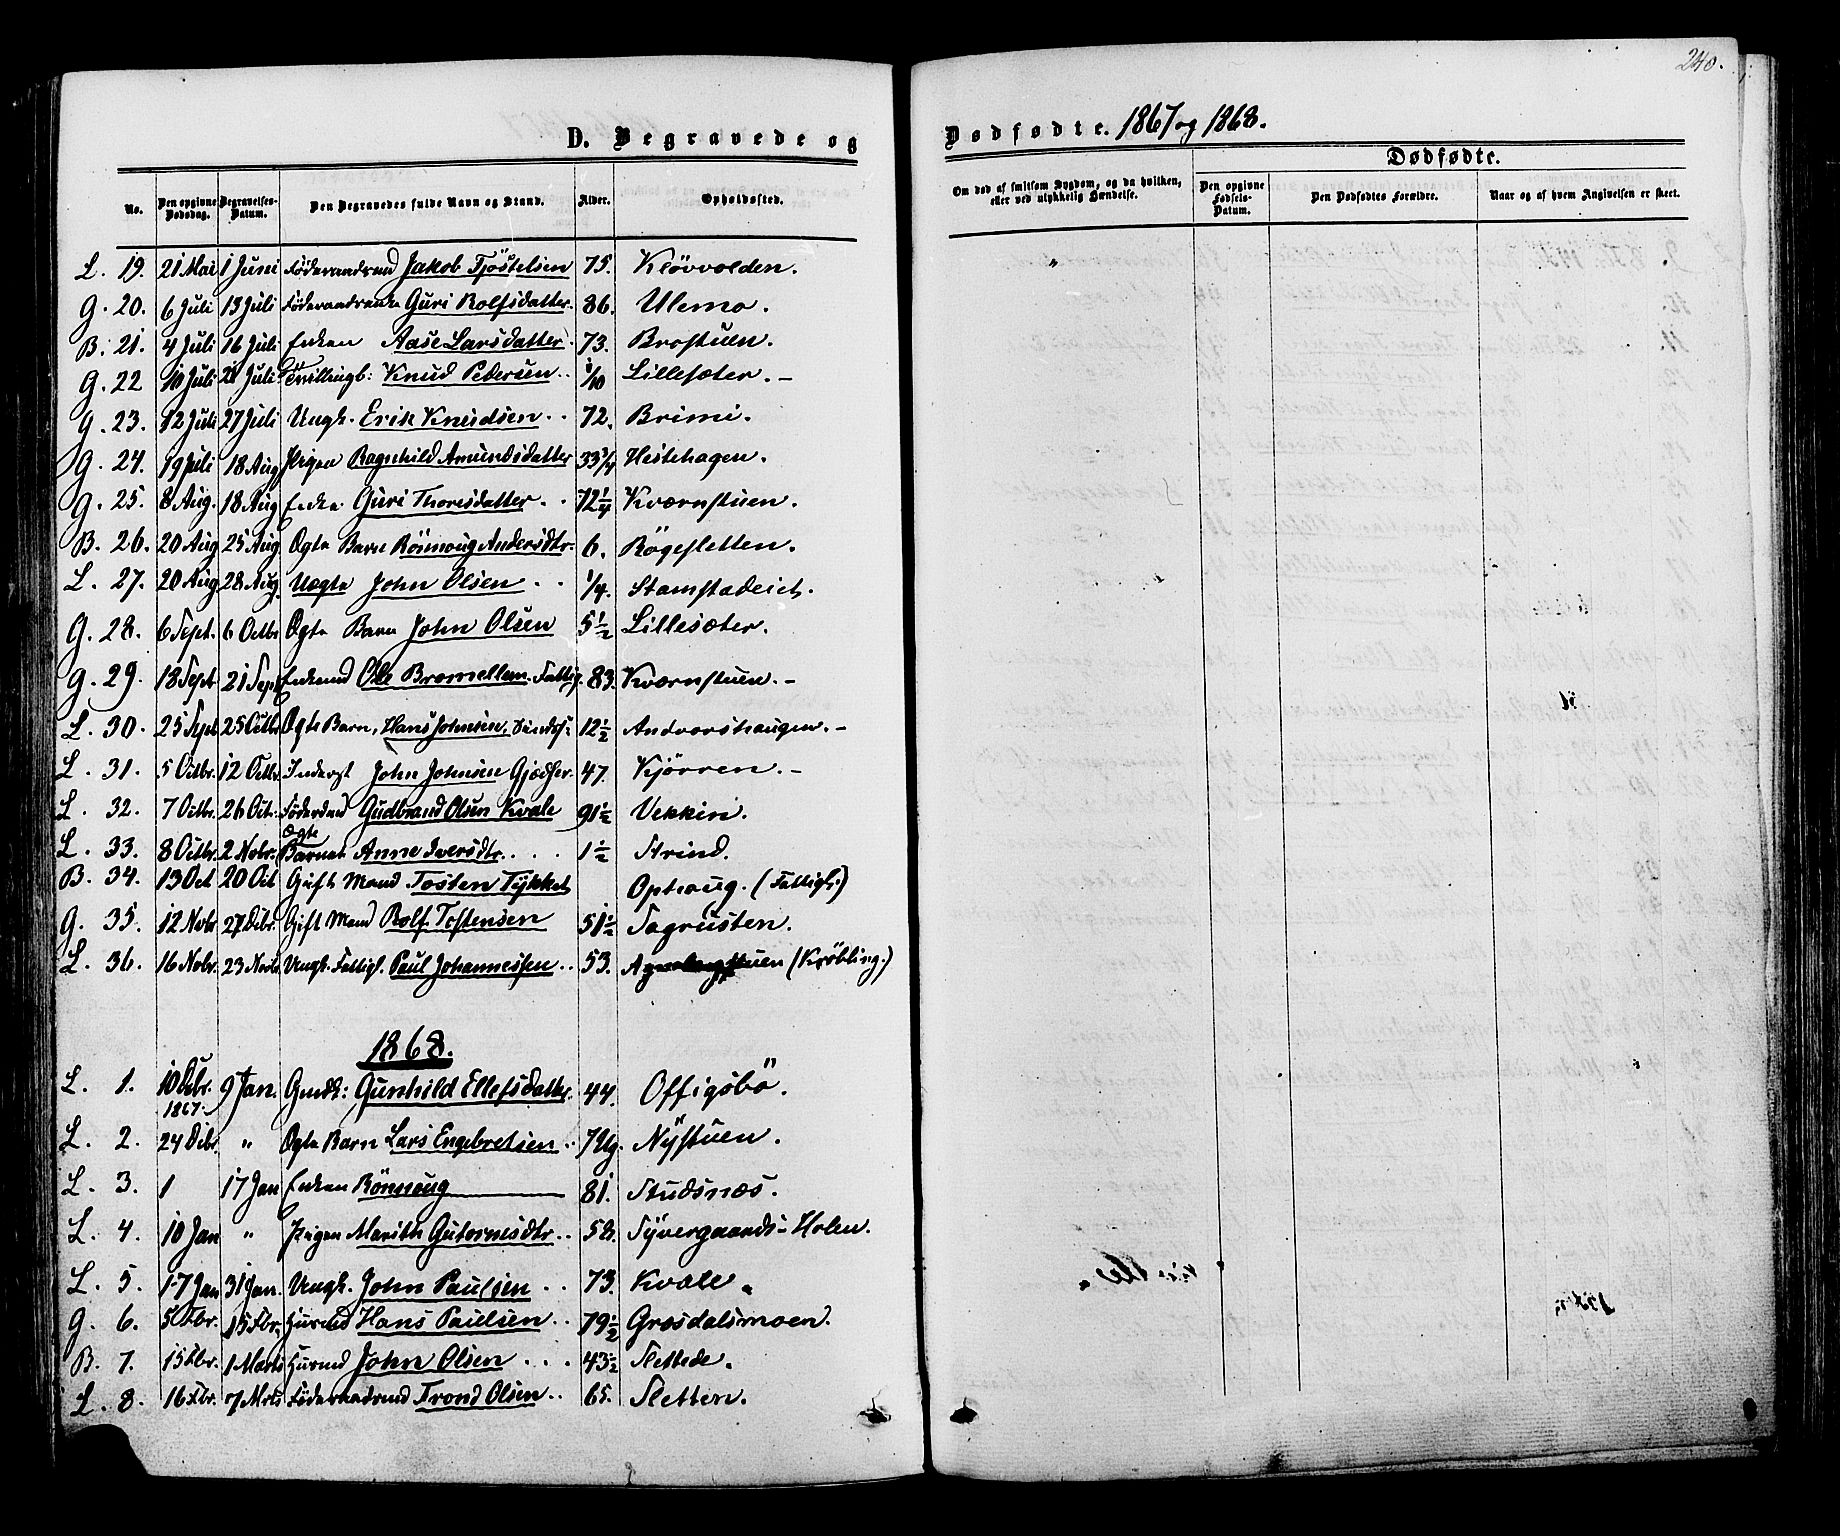 240.
D. Begravede og Dødfødte. 1867 og 1868.
Dødfødte.
No. Den opgivne Dødsdag. Begravelses-Datum. Den Begravedes fulde Navn og Stand. Alder. Opholdssted. Om død af smitsom Sygdom, og da hvilken, eller ved ulykkelig Hændelse. Den opgivne Fødsels-Datum. Den Dødfødtes Forældre. Naar og af hvem Angivelsen er skeet.
L. 19. 21 Mai 1 Juni Föderaadmd Jakob Tjöstelsen 75. Klövvolden. "
G. 20. 6 Juli 13 Juli Föderaadsenke Guri Rolfsdatter. 86. Ulemo.
B. 21. 4 Juli 16 Juli Enken Aase Larsdatter. 73. Brostuen.
G. 22 10 Juli 21 Juli Tvillingb: Knud Pedersen.. 1/10 Lillesæter. -
G. 23. 12 Juli 27 Juli Ungk. Erik Knudsen.. 72. Brimi.
G. 24. 19 Juli 18 Aug Pigen Ragnhild Amundsdatter 33 3/4 Hestehagen.
G. 25. 8 Aug. 18 Aug Enka Guri Thoresdatter. . 72 1/4 Kværnstuen.
B. 26. 20 Aug 25 Aug Ægte Barn Rönnoug Andersdtr. 6. Rögesletten.
L. 27. 20 Aug 28 Aug Uægte John Olsen . . 1/4. Stamstadeich.
G. 28. 6 Sept. 6 Octbr Ægte Barn John Olsen 5 1/2 Lillesæter.
G. 29. 18 Sept 21 Sept Enkemd Ole Bromellem. Fattig. 83. Kværnstuen. -
L. 30. 25 Sept 25 Octbr Ægte Barn, Hans Johnsen, 12 1/2 Andvorshaugen. -
L. 31. 5 Octbr. 12 Octbr. Inderst John Johnsen Gjedser. 47. Kjörren. -
L. 32. 7 Octbr. 26 Oct. Föderdmd Gudbrand Olsen Kvale 91 1/2 Vekkin.
L. 33. 8 Octbr. 2 Nobr. Ægte Barnet Anne Iversdtr.... 1 1/2 Strind.
B. 34. 13 Oct 20 Oct Gift Mand Tosten Tykket Ophoug. (Fattigl.)
G. 35. 12 Nobr 27 Debr. Gift Mand Rolf Tostensen 51 1/2 Sagrusten.
L. 36. 16 Nobr. 23 Nobr. Ungk. Fattigl. Paul Johannessen.. 53. (Kröbling.)
1868.
L. 1. 10 Debr. 1867. 9 Jan. Gmdk: Gunhild Ellefsdatter. 44. Offigsbö.
L. 2. 24 Debr. " Ægte Barn Lars Engebretsen.. 7 Ug. Nystuen.
L. 3. 1 17 Jan Enken Rönnoug 81. Studsnæs.
L. 4. 10 Jan " Pigen Marith Gutormsdtr.. 58. Syvergaards-Holen.
L. 5. 17 Jan 31 Jan. Ungk. John Paulsen.. 73. Kvale.
G. 6. 5 Fbr. 15 Fbr. Husmd Hans Paulsen.. 79 1/2 Grosdalsmoen.
B. 7. 15 Fbr. 1 Marts Husmd John Olsen... 43 1/2 Slettede.
L. 8. 16 Fbr. 7 Mrts Föderaadsmd Trond Olsen.. 65. Sletten.